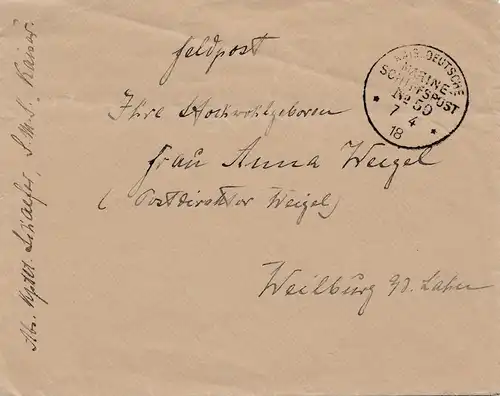 Feldpost
KAIS. DEUTSCHE
MARINE-
SCHIFFSPOST
No 59
7 4
18
Ihre Hochwohlgeboren
Frau Anna Weigel
(Postdirektor Weigel)
Weilburg a/d. Lahn
Abs. Schaefer, S.M.S. Kaiser.